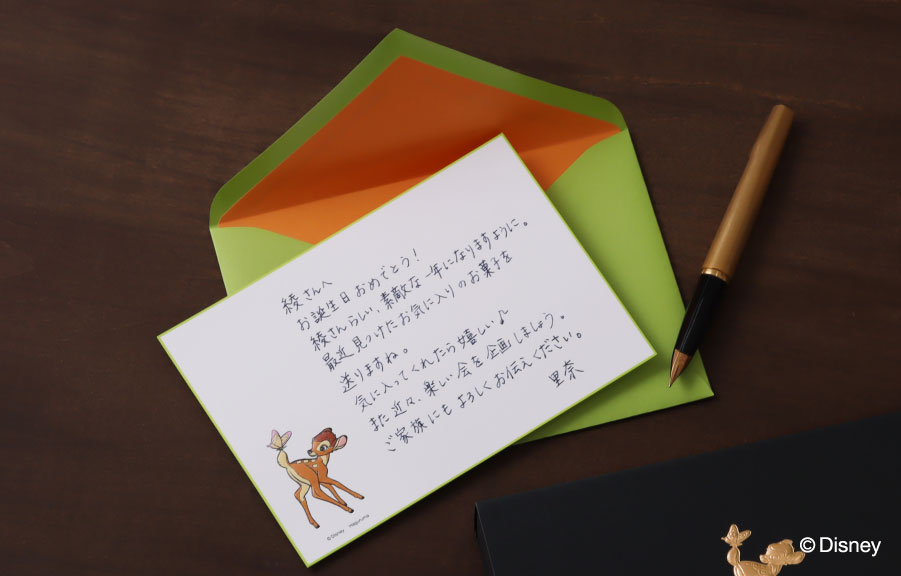 綾さんへ
お誕生日おめでとう！
綾さんらしい、素敵な一年になりますように。
最近見つけたお気に入りのお菓子を
送りますね。
気に入ってくれたら嬉しい♪
また近々、楽しい会を企画しましょう。
ご家族にもよろしくお伝えください。
里奈
©Disney Haguruma
©Disney